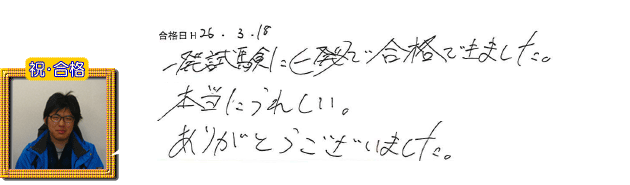 合格日 H 26. 3. 18
祝・合格
一発試験に一発で合格できました。
本当にうれしい。
ありがとうございました。